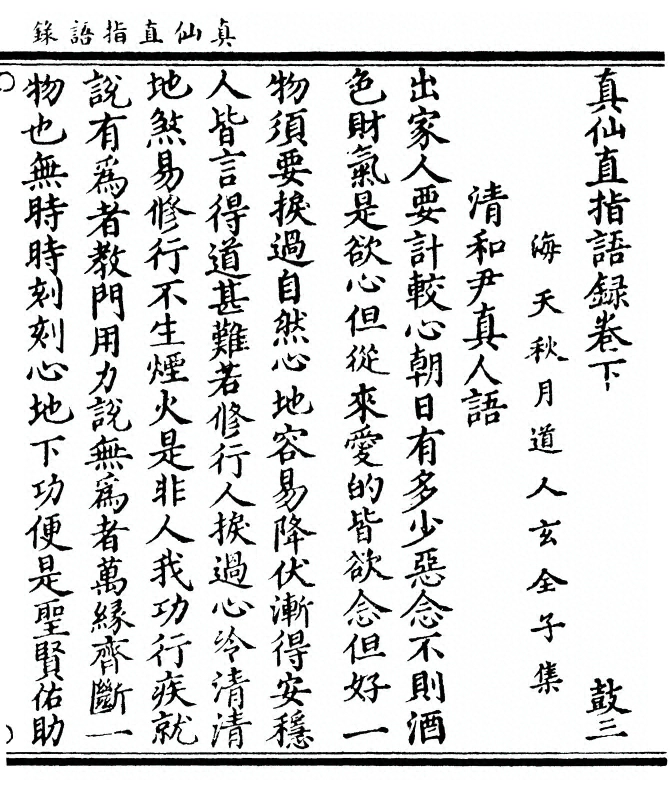 真仙直指語錄
真仙直指語録卷下
鼓三
海天秋月道人玄全子集
清和尹真人語
出家人要計較心朝日有多少惡念不則酒
色財氣是欲心但從來愛的皆欲念但好一
物須要捩過自然心地容易降伏漸得安穩
人皆言得道甚難若修行人捩過心冷清清
地煞易修行不生煙火是非人我功行疾就
說有為者教門用力說無為者萬緣齊斷一
物也無時時刻刻心地下功便是聖賢佑助